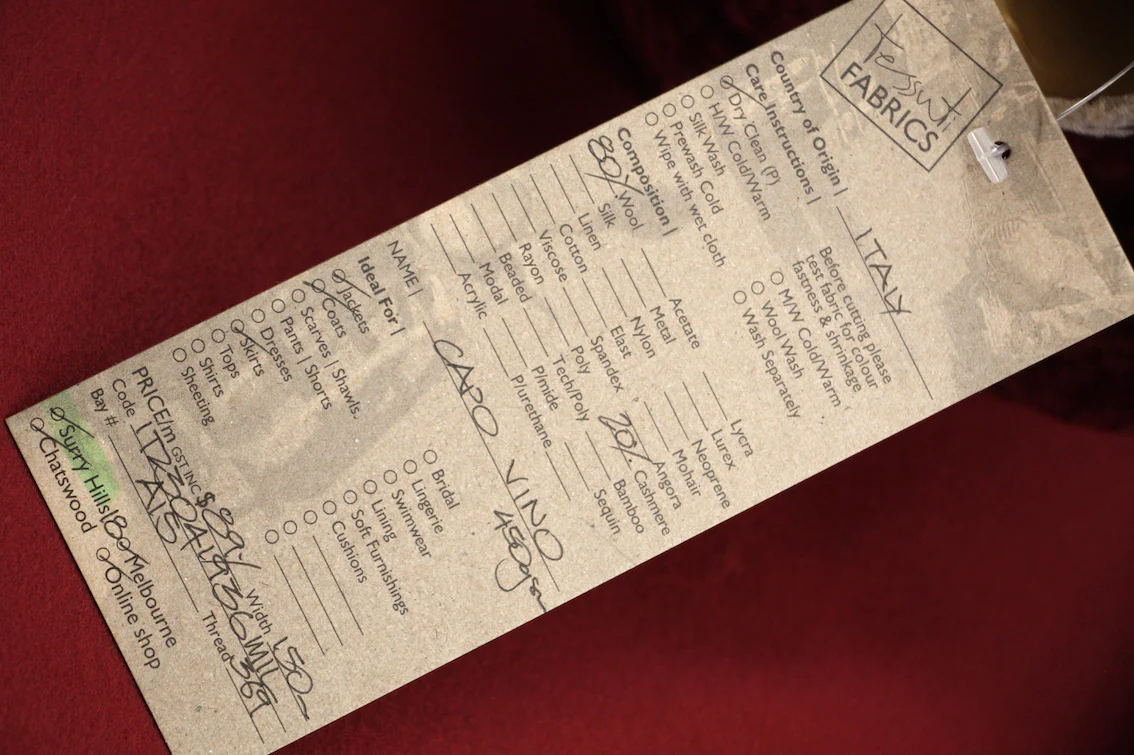 tessuti
FABRICS
Country of Origin | ITALY
Care Instructions |
Dry Clean (P)
H/W Cold/Warm
Silk Wash
Prewash Cold
Wipe with wet cloth
Before cutting please
test fabric for colour
fastness & shrinkage
M/W Cold/Warm
Wool Wash
Wash Separately
Composition |
80% Wool
Silk
Linen
Cotton
Viscose
Rayon
Beaded
Modal
Acrylic
Acetate
Metal
Nylon
Elast
Spandex
Poly
Tech/Poly
P/mide
P/urethane
Lycra
Lurex
Neoprene
Mohair
Angora
20% Cashmere
Bamboo
Sequin
NAME | CAPO VINO
450gsm
Ideal For |
Jackets
Coats
Scarves | Shawls.
Pants | Shorts
Dresses
Skirts
Tops
Shirts
Sheeting
Bridal
Lingerie
Swimwear
Lining
Soft Furnishings
Cushions
PRICE/m GST INC $89% Width 150
Code
Bay # A15 Thread 369
Surry Hills Melbourne
Chatswood Online shop